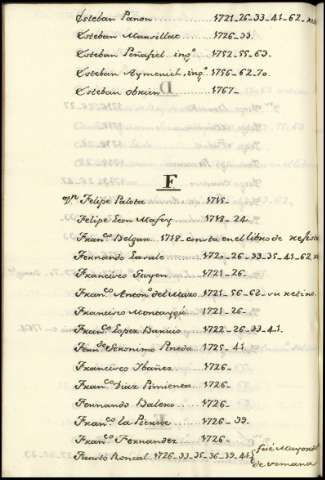 Esteban Panon 1721-26-33-41-62
Esteban Manvillac 1726-33
Esteban Peñafiel ing.º 1752-55-63
Esteban Aymerich, ing.º 1756-62-70
Esteban obrien 1767-
F
D.n Felipe Palota 1715-
Felipe Leon Mafey 1718-24
Fran.co Belgun 1718-consta en el libro de
Fernando 1720-26-33-35-41-62
Francisco 1721-26-
Fran.co Anton del 1721-56-62-
Francisco 1721-26-
Fran.co Lopez Barrio 1722-26-33-41
Geronimo Pineda 1725-41
Francisco Ibañez 1726-
Fran.co Diaz Pimienta 1726-
Fernando 1726-
Fran.co la Pierre 1726-39
Fran.co Fernandez 1726-
1726-33-35-36-39-41
fué Mayord.
de semana